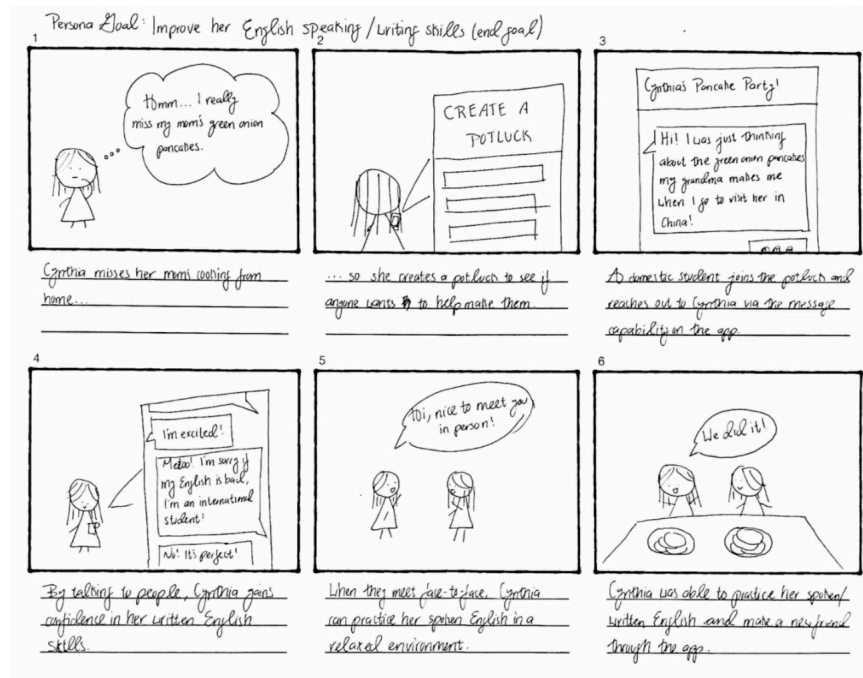 Persona Goal: Improve her English speaking/writing skills (end goal)
1
Hmm... I really
miss my mom's green onion
pancakes.
Cynthia misses her moms cooking from
home...
2
CREATE A
POTLUCK
... so she creates a potluck to see if
anyone wants to help make them.
3
Cynthia's Pancake Party!
Hi! I was just thinking
about the green onion pancakes
my grandma makes me
when I go to visit her in
China!
A domestic student joins the potluck and
reaches out to Cynthia via the message
capability on the app.
4
I'm excited!
Me too! I'm sorry if
my English is bad,
I'm an international
student!
No! It's perfect!
By talking to people, Cynthia gains
confidence in her written English
skills.
5
Hi, nice to meet you
in person!
When they meet face-to-face, Cynthia
can practice her spoken English in a
relaxed environment.
6
We did it!
Cynthia was able to practice her spoken/
written English and make a new friend
through the app.